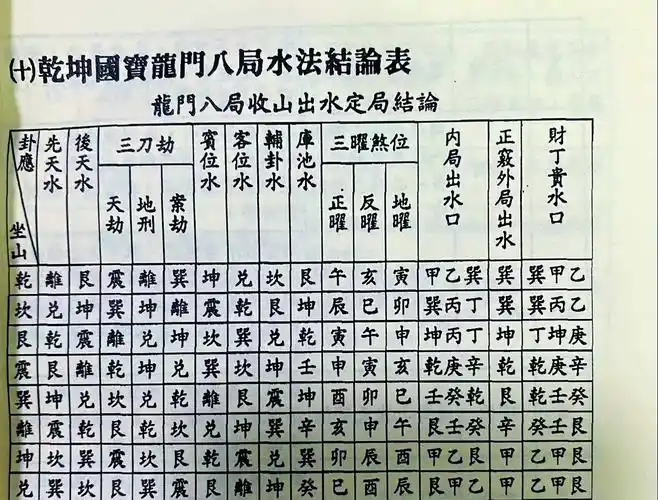 ㈩乾坤國寶龍門八局水法結論表
龍門八局收山出水定局結論
卦應 坐山 先天水 後天水 三刀劫 天劫 地刑 案劫 賓位水 客位水 輔卦水 庫池水 三曜煞位 正曜 反曜 地曜 内局出水口 正竅外局出水 財丁貴水口
乾 離 艮 震 離 巽 坤 兑 坎 艮 午 亥 寅 甲乙巽 巽 巽甲乙
坎 兑 坤 巽 坤 離 震 乾 艮 坤 辰 巳 卯 巽丙丁 巽 巽丙乙
艮 乾 震 離 兑 坤 坎 巽 兑 乾 寅 午 申 坤丙丁 坤 丁坤庚
震 艮 離 乾 坤 兑 巽 坎 坤 壬 申 寅 亥 乾庚辛 乾 乾庚辛
巽 坤 兑 坎 兑 乾 離 艮 震 坤 酉 卯 巳 壬癸乾 艮 乾壬癸
離 震 乾 艮 乾 坎 兑 坤 巽 辛 亥 申 午 艮壬癸 辛 癸壬艮
坤 坎 巽 震 坎 艮 乾 震 兑 巽 卯 辰 酉 甲乙艮 甲 乙甲艮
兑 巽 坎 艮 巽 震 艮 離 坤 癸 巳 酉 辰 艮甲乙 甲 乙甲艮